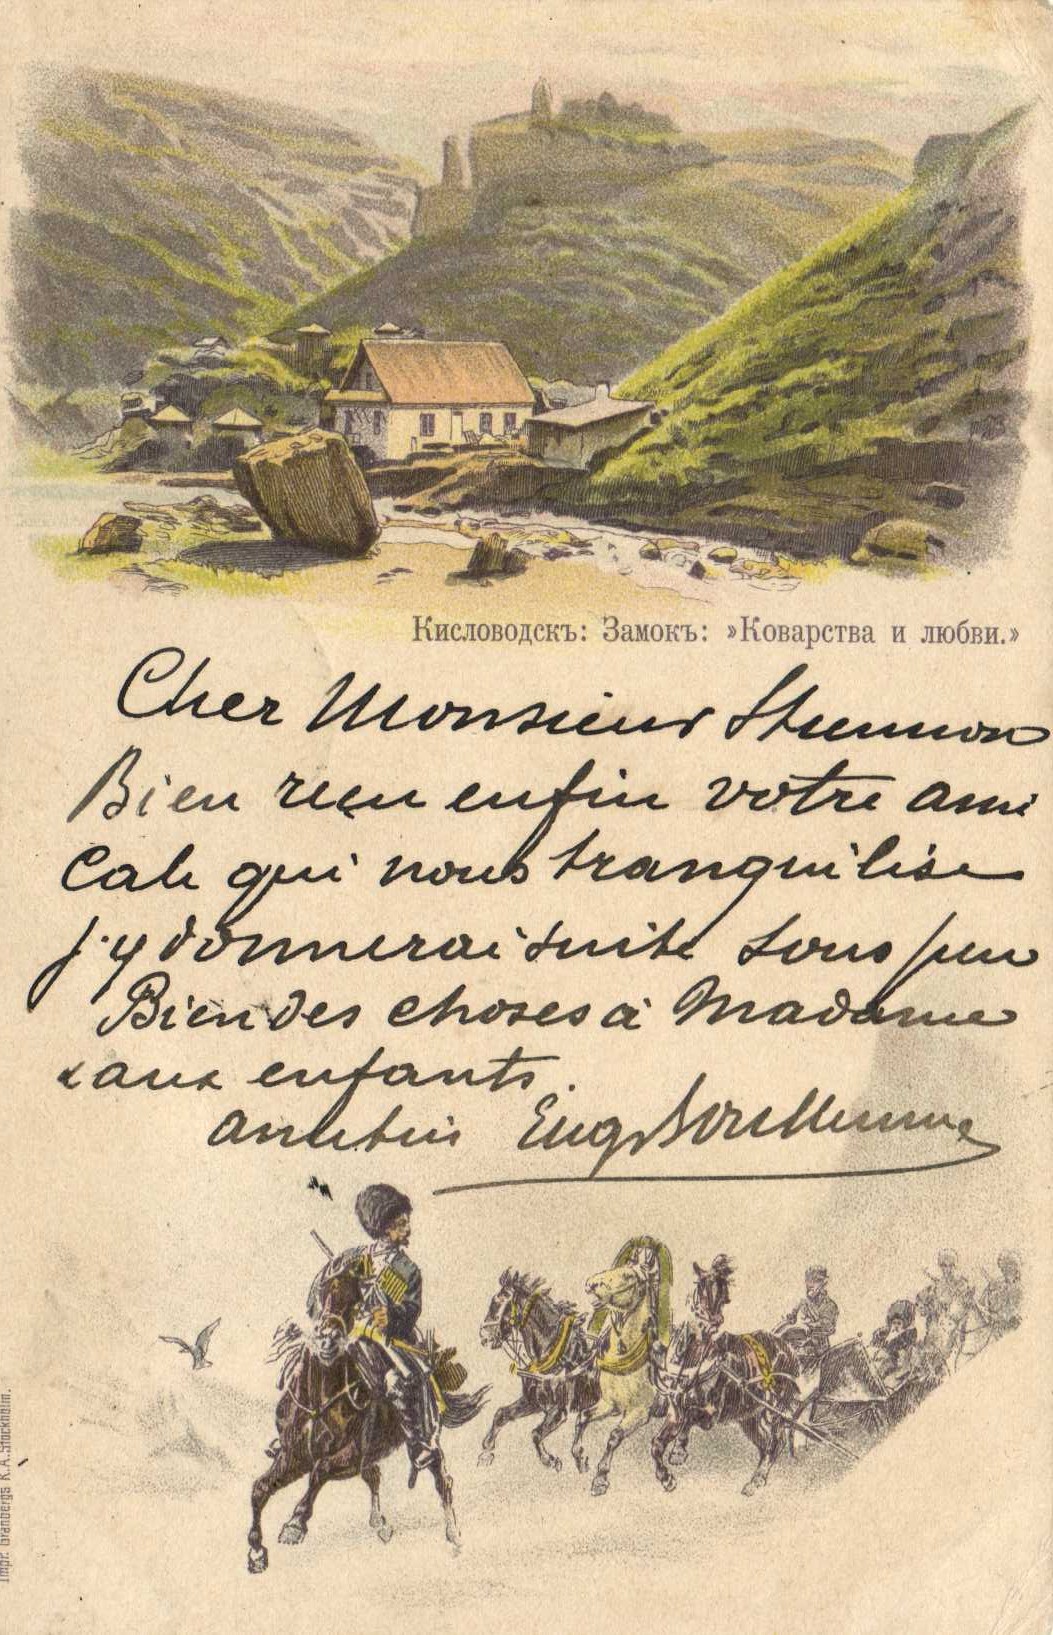 Кисловодскъ: Замокъ: »Коварства и любви.»
Cher Monsieur
Bien reçu enfin votre ami
cale qui nous tranquilise
j'y donnerai suite sous peu
Bien des choses à Madame
& aux enfants.
Eug
Impr. Granbergs K.A. Stockholm.